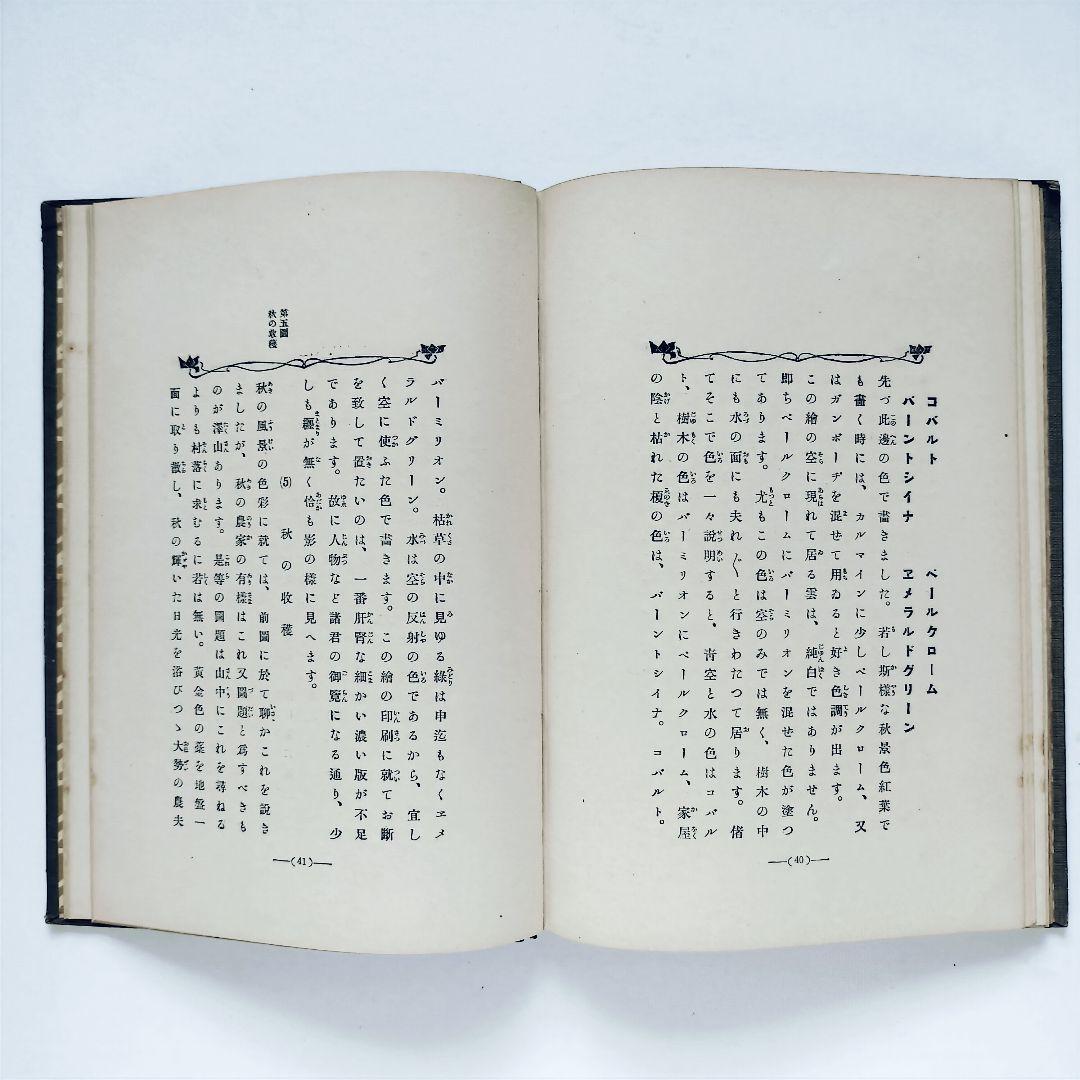 コバルト　ペールクローム
バーントシイナ　ヱメラルドグリーン
先づ此邊の色で畵きました。若し斯樣な秋景色紅葉で
も畵く時には、カルマインに少しペールクローム、又
はガンボーヂを混せて用ゐると好き色調が出ます。
この繪の空に現れて居る雲は、純白ではありません。
即ちペールクロームにバーミリオンを混せた色が塗つ
てあります。尤もこの色は空のみでは無く、樹木の中
にも水の面にも夫れ〴〵と行きわたつて居ります。偖
てそこで色を一々說明すると、靑空と水の色はコバル
ト、樹木の色はバーミリオンにペールクローム、家屋
の陰と枯れた榎の色は、バーントシイナ。コバルト。
(40)
バーミリオン。枯草の中に見ゆる綠は申迄もなくヱメ
ラルドグリーン。水は空の反射の色であるから、宜し
く空に使ふた色で畵きます。この繪の印刷に就てお斷
を致して置たいのは、一番肝腎な細かい濃い版が不足
であります。故に人物など諸君の御覽になる通り、少
しも纒が無く恰も影の樣に見へます。
第五圖
秋の收穫
(5)　秋の收穫
秋の風景の色彩に就ては、前圖に於て聊かこれを說き
ましたが、秋の農家の有樣はこれ又圖題と爲すべきも
のが澤山あります。是等の圖題は山中にこれを尋ねる
よりも村落に求むるに若は無い。黃金色の藁を地盤一
面に取り散し、秋の輝いた日光を浴びつゝ大勢の農夫
(41)